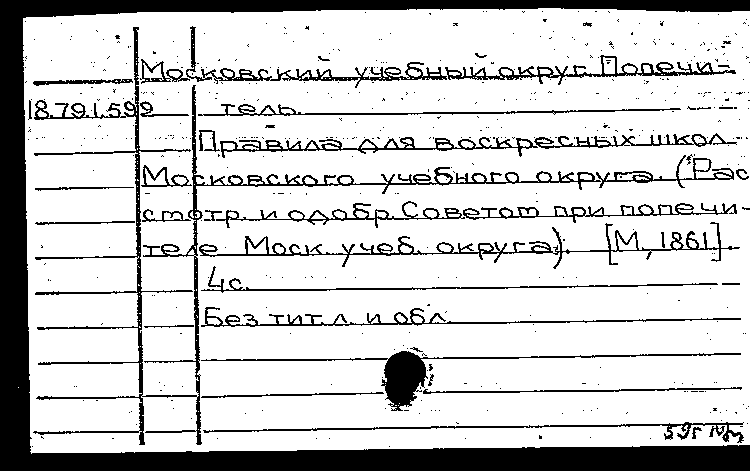 Московский учебный округ. Попечи-
18.791.599 тель.
Правила для воскресных школ
Московского учебного округа. (Рас
смотр. и одобр. Советом при попечи-
теле Моск. учеб. округа). [М., 1861].
4с.
Без тит. л. и обл.
59г